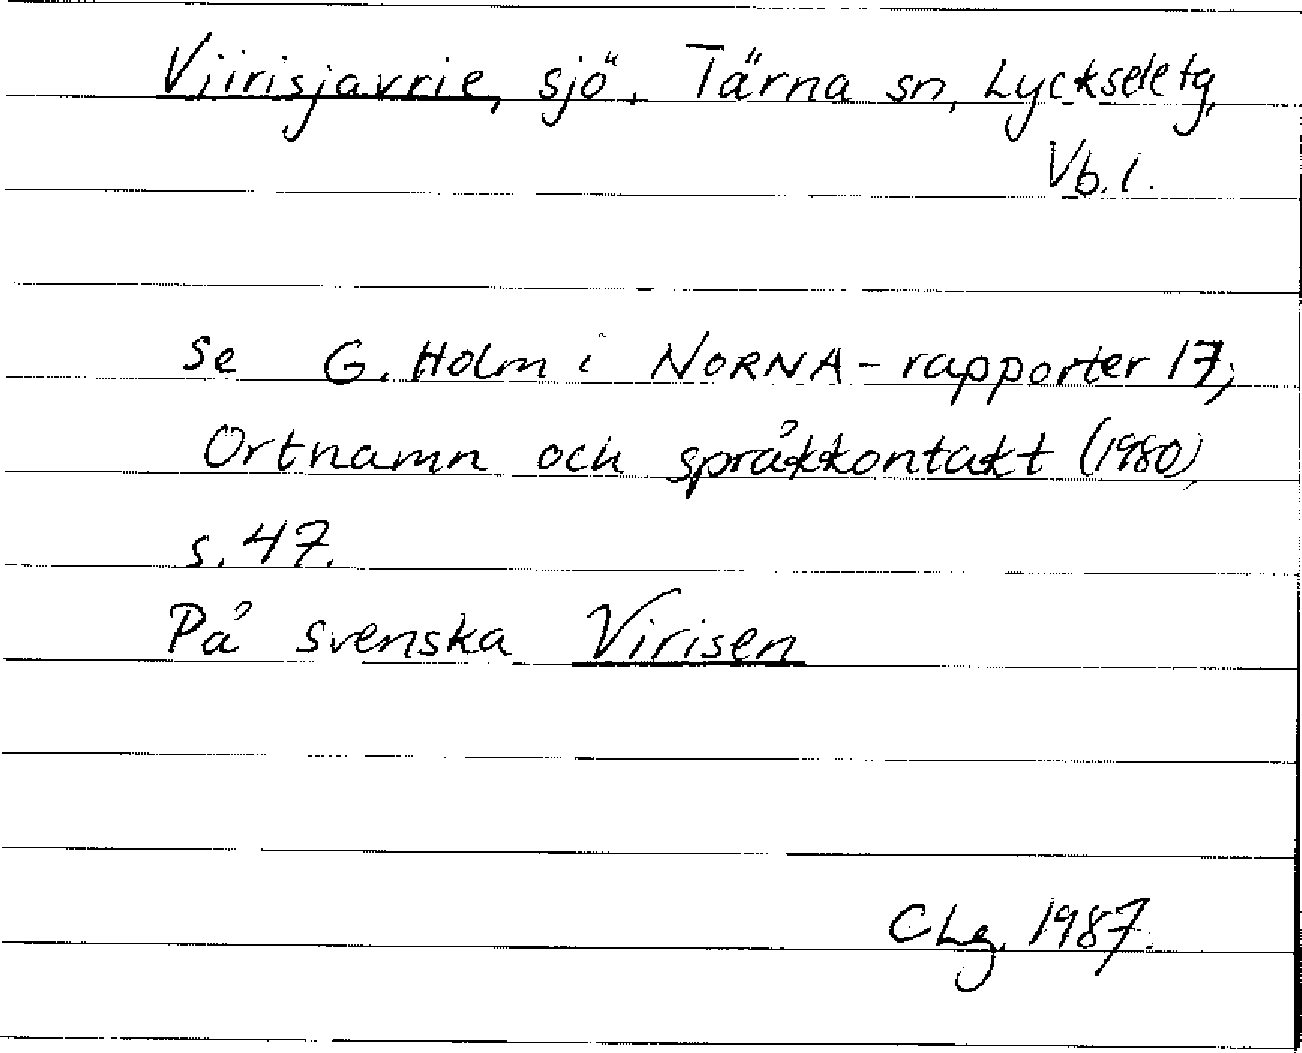 Viirisjavrie, sjö. Tärna sn, Lycksele tg,
Vb. l.
Se G. Holm i NORNA-rapporter 17,
Ortnamn och språkkontakt (1980),
s. 47.
På svenska Virisen
CLg. 1987.